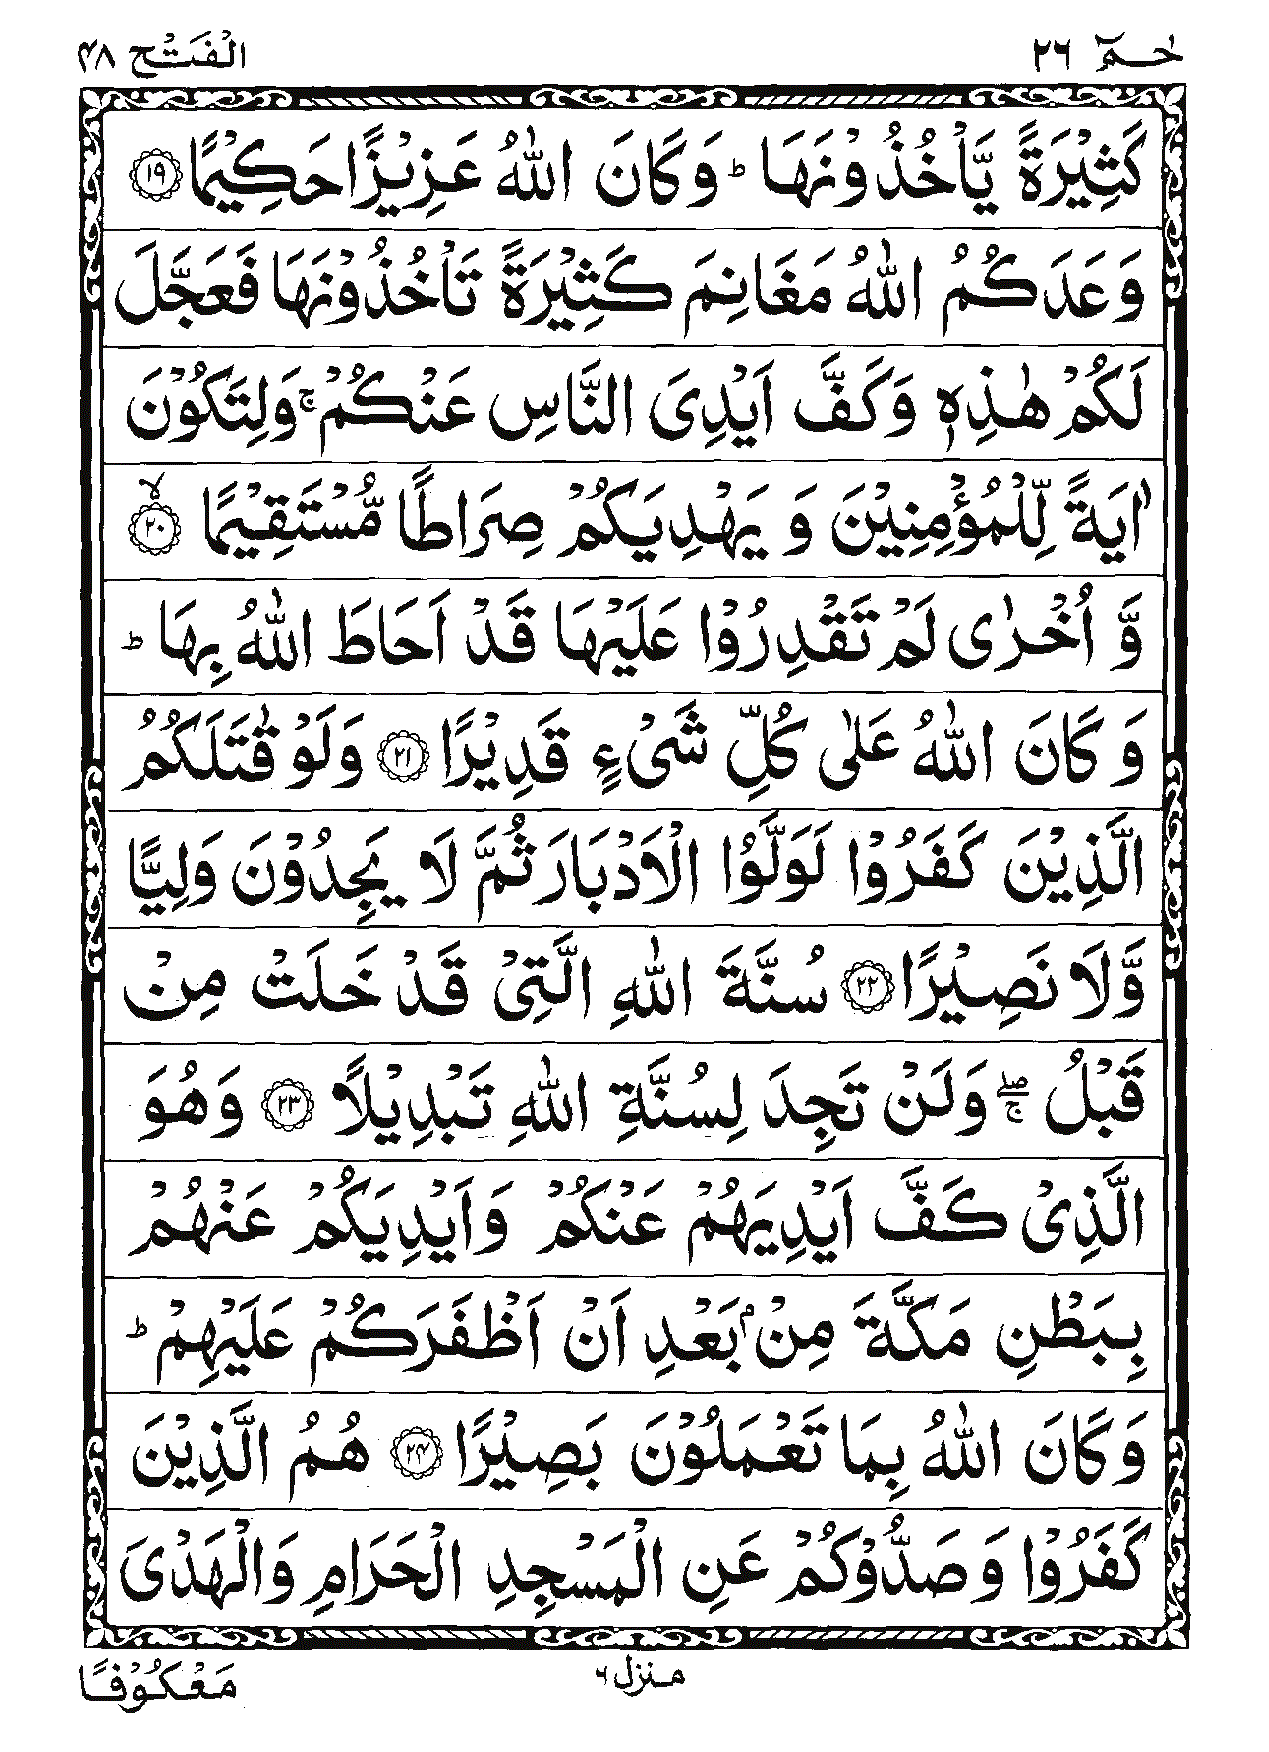 حٰـمٓ ٢٦
الْفَتْح ٤٨
كَثِيْرَةً يَّاْخُذُوْنَهَا ؕ وَكَانَ اللّٰهُ عَزِيْزًا حَكِيْمًا ۝١٩
وَعَدَكُمُ اللّٰهُ مَغَانِمَ كَثِيْرَةً تَاْخُذُوْنَهَا فَعَجَّلَ
لَكُمْ هٰذِهٖ وَكَفَّ اَيْدِىَ النَّاسِ عَنْكُمْ ۚ وَلِتَكُوْنَ
اٰيَةً لِّلْمُؤْمِنِيْنَ وَ يَهْدِيَكُمْ صِرَاطًا مُّسْتَقِيْمًا ۝٢٠ۙ
وَّ اُخْرٰى لَمْ تَقْدِرُوْا عَلَيْهَا قَدْ اَحَاطَ اللّٰهُ بِهَا ؕ
وَ كَانَ اللّٰهُ عَلٰى كُلِّ شَىْءٍ قَدِيْرًا ۝٢١ وَلَوْ قٰتَلَكُمُ
الَّذِيْنَ كَفَرُوْا لَوَلَّوُا الْاَدْبَارَ ثُمَّ لَا يَجِدُوْنَ وَلِيًّا
وَّلَا نَصِيْرًا ۝٢٢ سُنَّةَ اللّٰهِ الَّتِىْ قَدْ خَلَتْ مِنْ
قَبْلُ ۖۚ وَلَنْ تَجِدَ لِسُنَّةِ اللّٰهِ تَبْدِيْلًا ۝٢٣ وَهُوَ
الَّذِىْ كَفَّ اَيْدِيَهُمْ عَنْكُمْ وَاَيْدِيَكُمْ عَنْهُمْ
بِبَطْنِ مَكَّةَ مِنْۢ بَعْدِ اَنْ اَظْفَرَكُمْ عَلَيْهِمْ ؕ
وَكَانَ اللّٰهُ بِمَا تَعْمَلُوْنَ بَصِيْرًا ۝٢٤ هُمُ الَّذِيْنَ
كَفَرُوْا وَ صَدُّوْكُمْ عَنِ الْمَسْجِدِ الْحَرَامِ وَالْهَدْىَ
منزل ٦
مَعْكُوْفًا